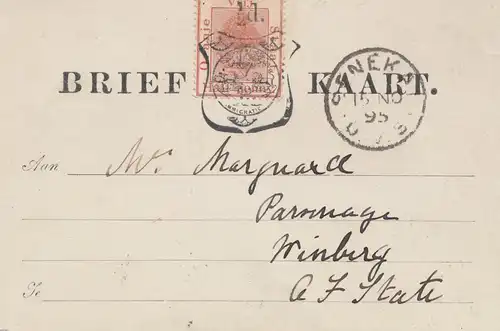 ½d.
BRIEF KAART.
SENEKAL
15 NO
95
O.V.S.
Aan Mr. Marquard
Parsonage
Winberg
Te O F State